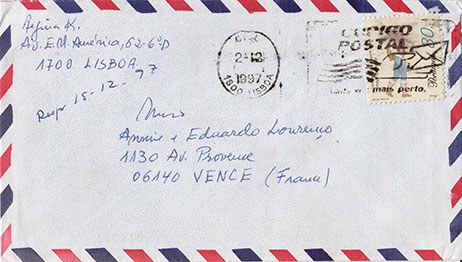 Regina K.
Av. E.U. América, 62-6ºD
1700 LISBOA
Resp 15-12-97
2-12
1997
1500 LISBOA
CÓDIGO
POSTAL
mais perto.
Annie e Eduardo Lourenço
1130 Av. Provence
06140 VENCE (France)